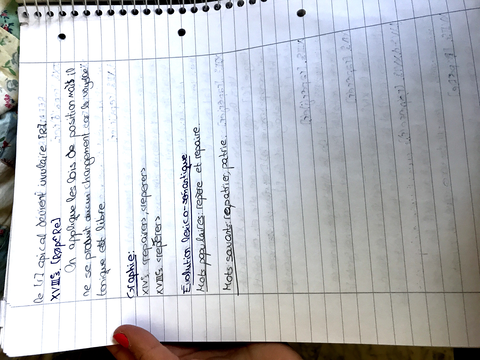 le [r] apical devient uvulaire [R].
XVIIIs. [RəpeRe]
On applique les lois de position mais il
ne se produit aucun changement car la voyelle
tonique est libre.
Graphie:
XIVs. <repairer>, <reperer>
XVIIIs. <repérer>
Évolution lexico-sémantique
Mots populaires: repère et repaire.
Mots savants: rapatrier, patrie.